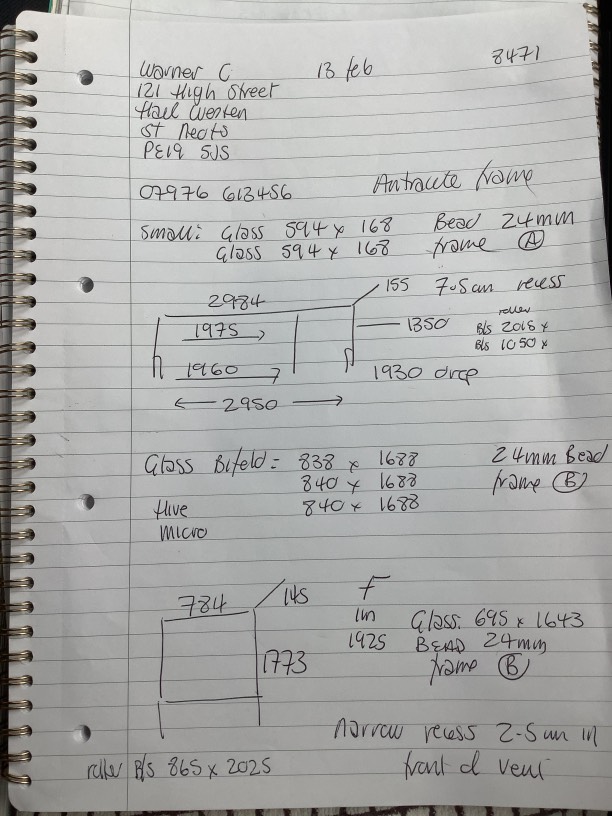 Warner C 13 feb 8471
121 High Street
Hail Westen
St Neots
PE19 5JS
07976 613456 Antracite frame
Small: Glass 594 x 168 Bead 24mm
Glass 594 x 168 frame A
2984 155 7.5cm recess
roller
1975 1350 B/s 2015 x
B/s 1050 x
1960 1930 drop
2950
Glass Bifold = 838 x 1688 24mm Bead
840 x 1688 frame B
Hive 840 x 1688
Micro
784 145 F
1m Glass: 695 x 1643
1925 BEAD 24mm
1773 frame B
Narrow recess 2-5cm in
roller B/s 865 x 2025 front of vent